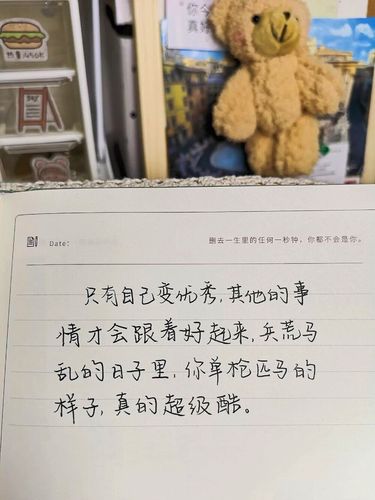 你今
真棒
热量450K
Date:
删去一生里的任何一秒钟，你都不会是你。
只有自己变优秀,其他的事
情才会跟着好起来,兵荒马
乱的日子里,你单枪匹马的
样子,真的超级酷。